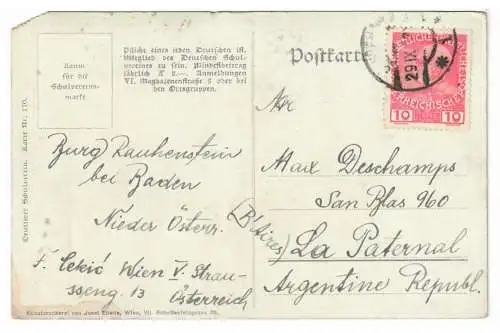 Raum
für die
Schulvereins-
marke
Pflicht eines jeden Deutschen ist,
Mitglied des Deutschen Schul-
vereines zu sein. Mindestbeitrag
jährlich K 2.—. Anmeldungen
VI. Magdalenenstraße 6 oder bei
den Ortsgruppen.
Postkarte
29 IX
10 10
Deutscher Schulverein. Karte Nr. 170.
Burg Rauhenstein
bei Baden
Nieder Österr.
F. Cekić Wien V. Strau-
sseng. 13 Österreich
Max Deschamps
San Blas 960
(B'Aires)
La Paternal
Argentine Republ.
Kunstdruckerei von Josef Eberle, Wien, VII. Schottenfeldgasse 38.